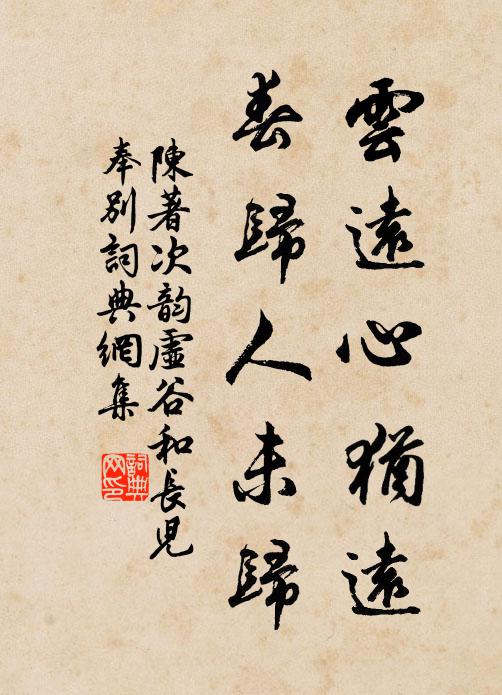 雲遠心猶遠
春歸人未歸
陳著次韵虛谷和長兒
奉別詞典網集
詞典
网印